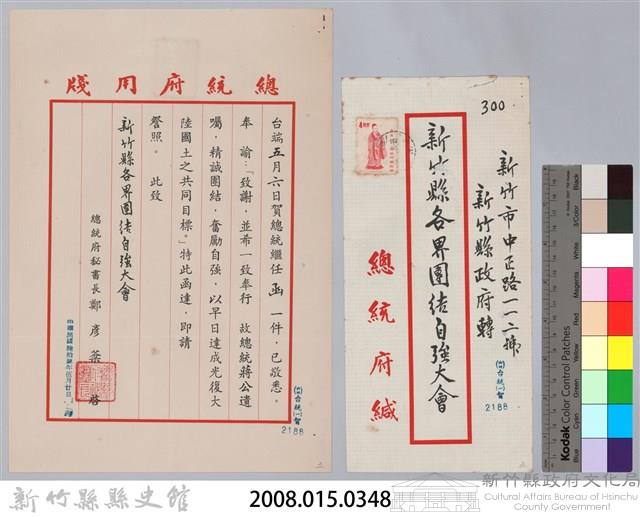 總統府用牋
台端五月六日賀總統繼任函一件,已敬悉。
奉 諭:「致謝,並希一致奉行 故總統蔣公遺
囑,精誠團結,奮勵自強,以早日達成光復大
陸國土之共同目標。」特此函達,即請
詧照。 此致
新竹縣各界團結自強大會
總統府秘書長鄭彥棻 啓
(64)台統(一)賀
2188
300
新竹市中正路一一二號
新竹縣政府轉
新竹縣各界團結自強大會
總統府緘
(64)台統(一)賀
2188
Kodak Color Control Patches
Blue
Cyan
Green
Yellow
Red
Magenta
White
3/Color
Black
新竹縣縣史館
2008.015.0348
新竹縣政府文化局
Cultural Affairs Bureau of Hsinchu
County Government